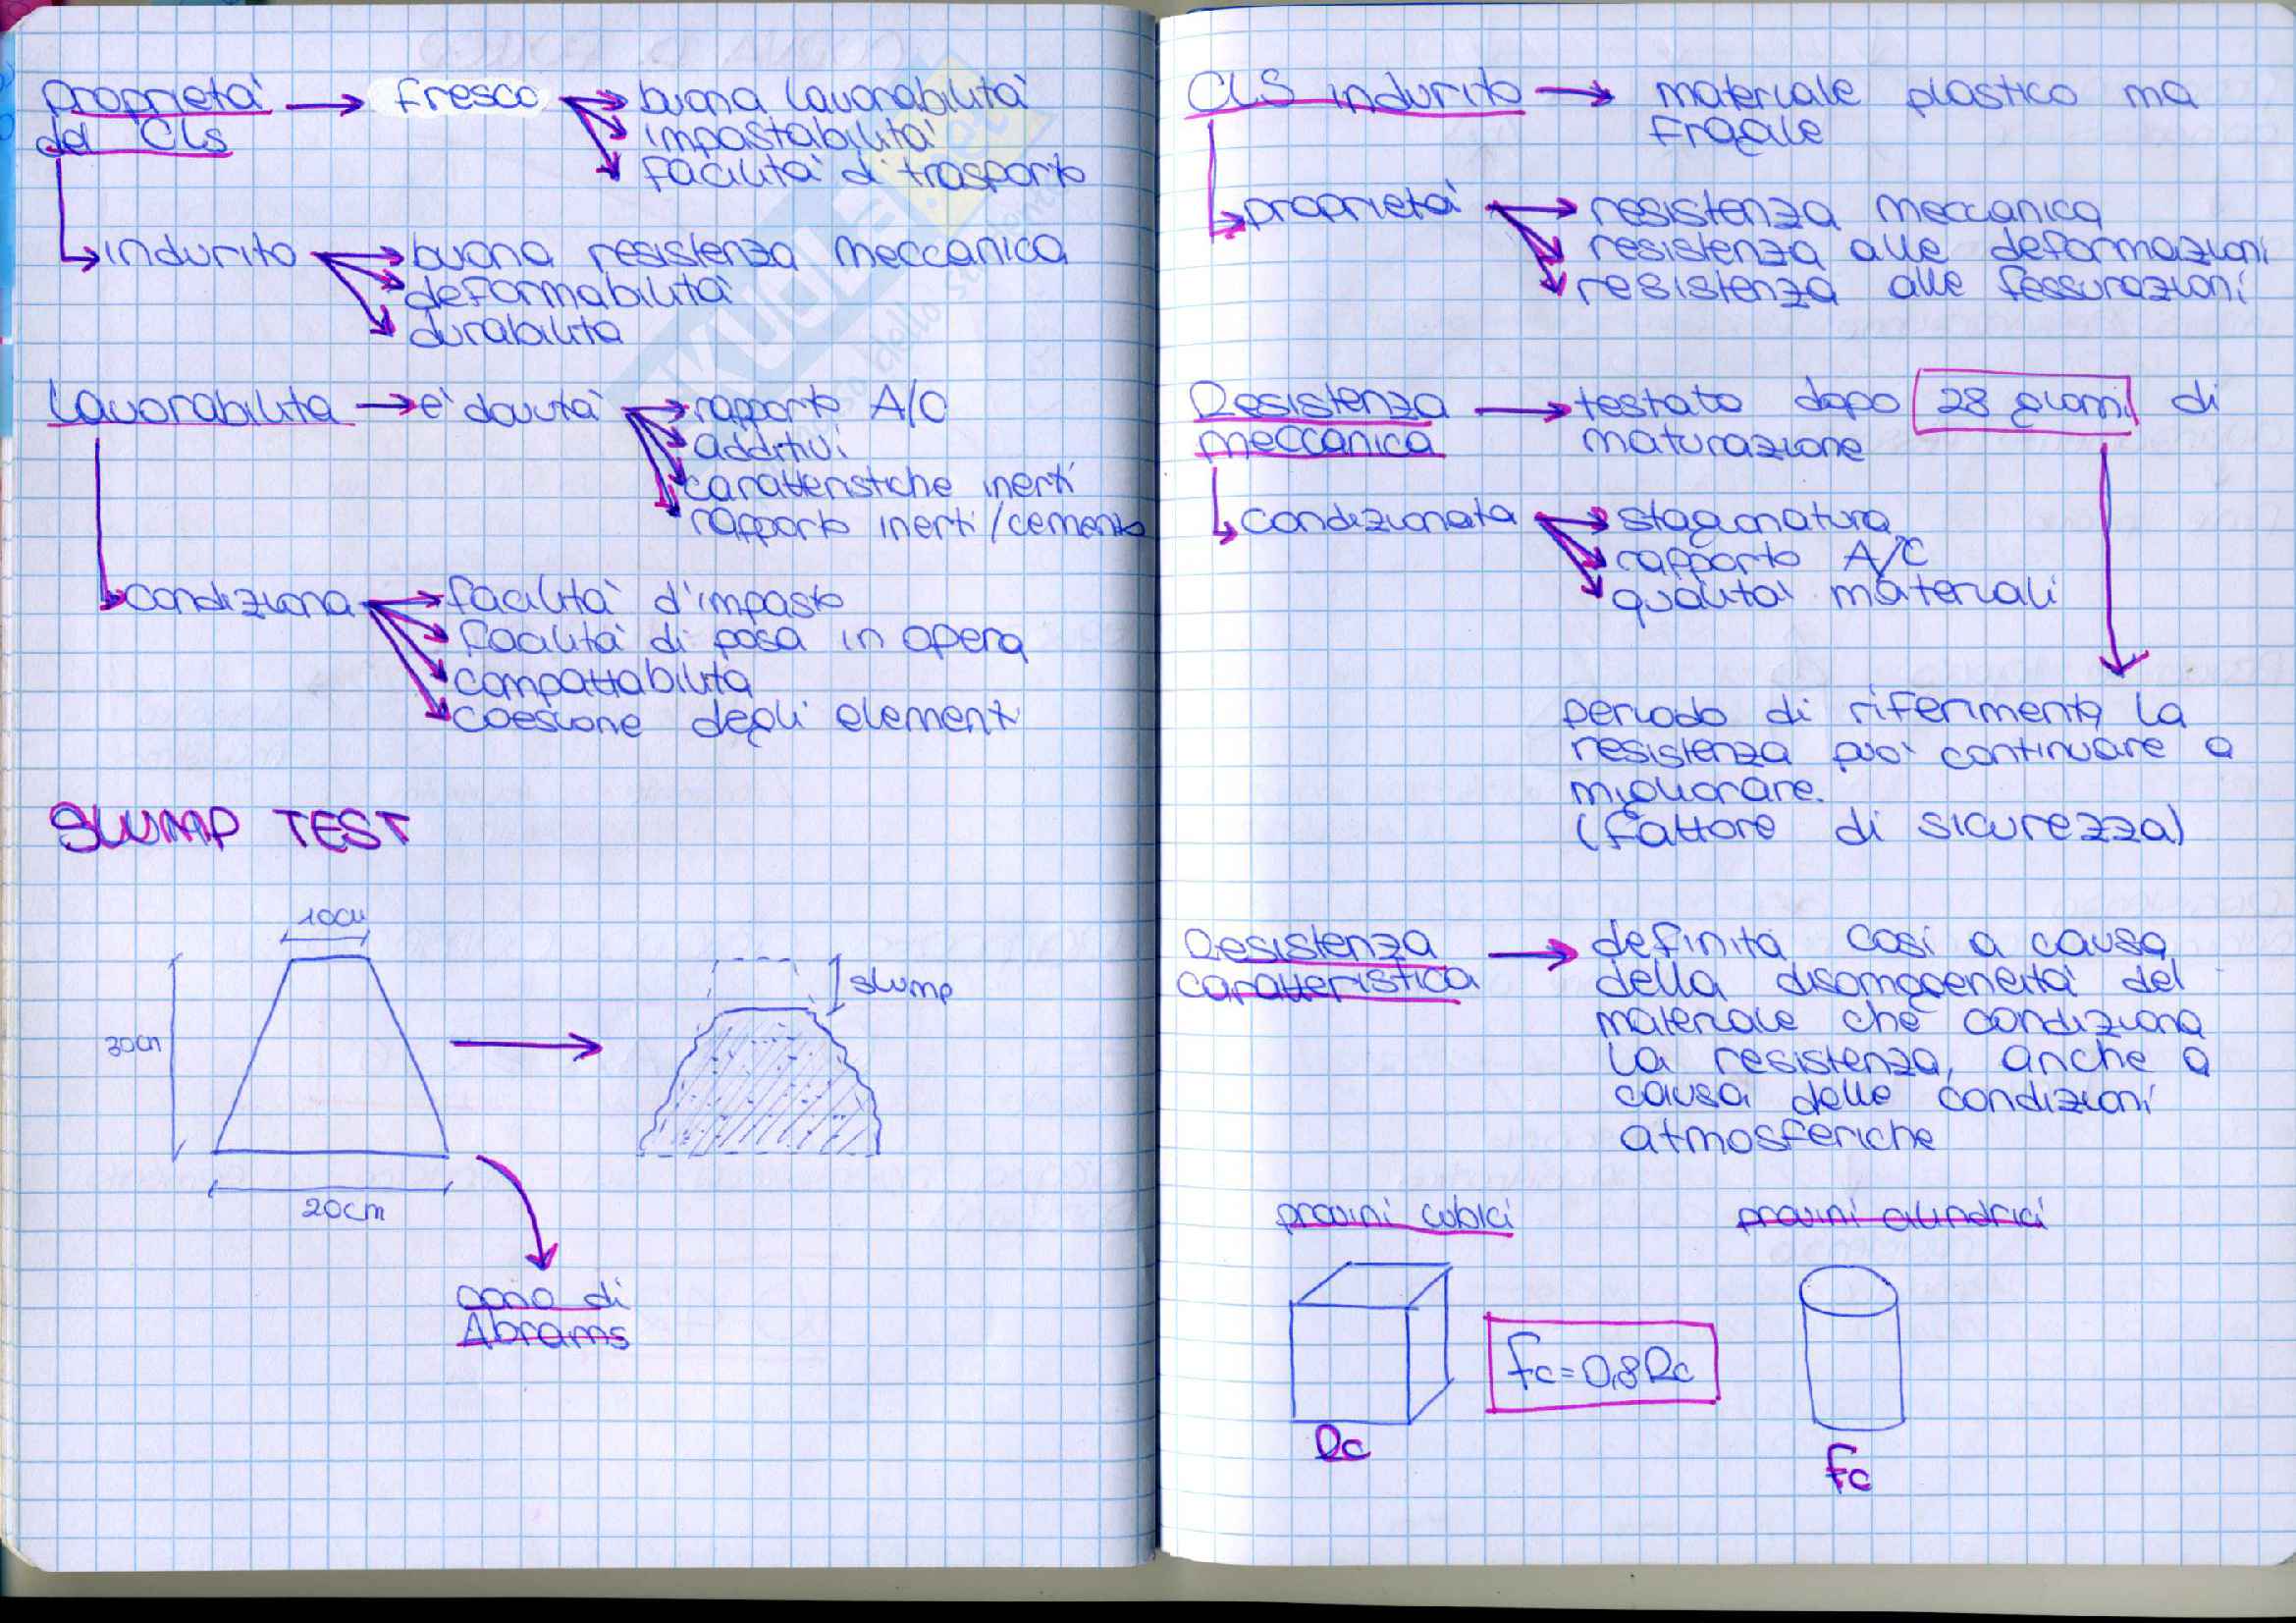 proprietà → fresco → buona lavorabilità
del Cls → impastabilità
→ facilità di trasporto
→ indurito → buona resistenza meccanica
→ deformabilità
→ durabilità
Lavorabilità → è dovuta → rapporto A/C
→ additivi
→ caratteristiche inerti
→ rapporto inerti/cemento
→ condiziona → facilità d'impasto
→ facilità di posa in opera
→ compattabilità
→ coesione degli elementi
SLUMP TEST
10cm
30cm
20cm
slump
cono di
Abrams
CLS indurito → materiale plastico ma
fragile
→ proprietà → resistenza meccanica
→ resistenza alle deformazioni
→ resistenza alle fessurazioni
Resistenza → testato dopo 28 giorni di
meccanica maturazione
→ condizionata → stagionatura
→ rapporto A/C
→ qualità materiali
periodo di riferimento, la
resistenza può continuare a
migliorare.
(fattore di sicurezza)
Resistenza → definita così a causa
caratteristica della disomogeneità del
materiale che condiziona
la resistenza, anche a
causa delle condizioni
atmosferiche
provini cubici provini cilindrici
fc=0,8Rc
Rc
fc